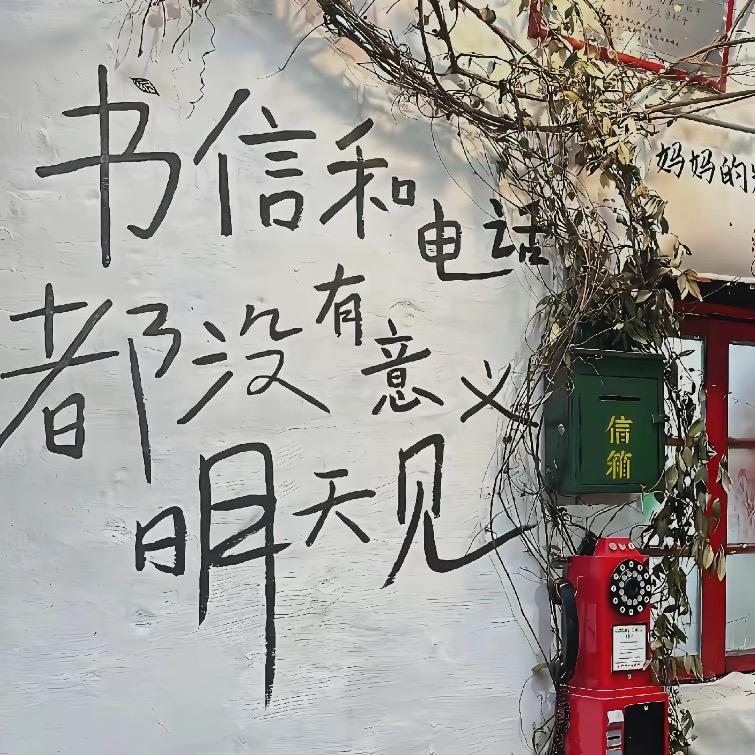 书信和电话
都没有意义
明天见
妈妈的
信箱